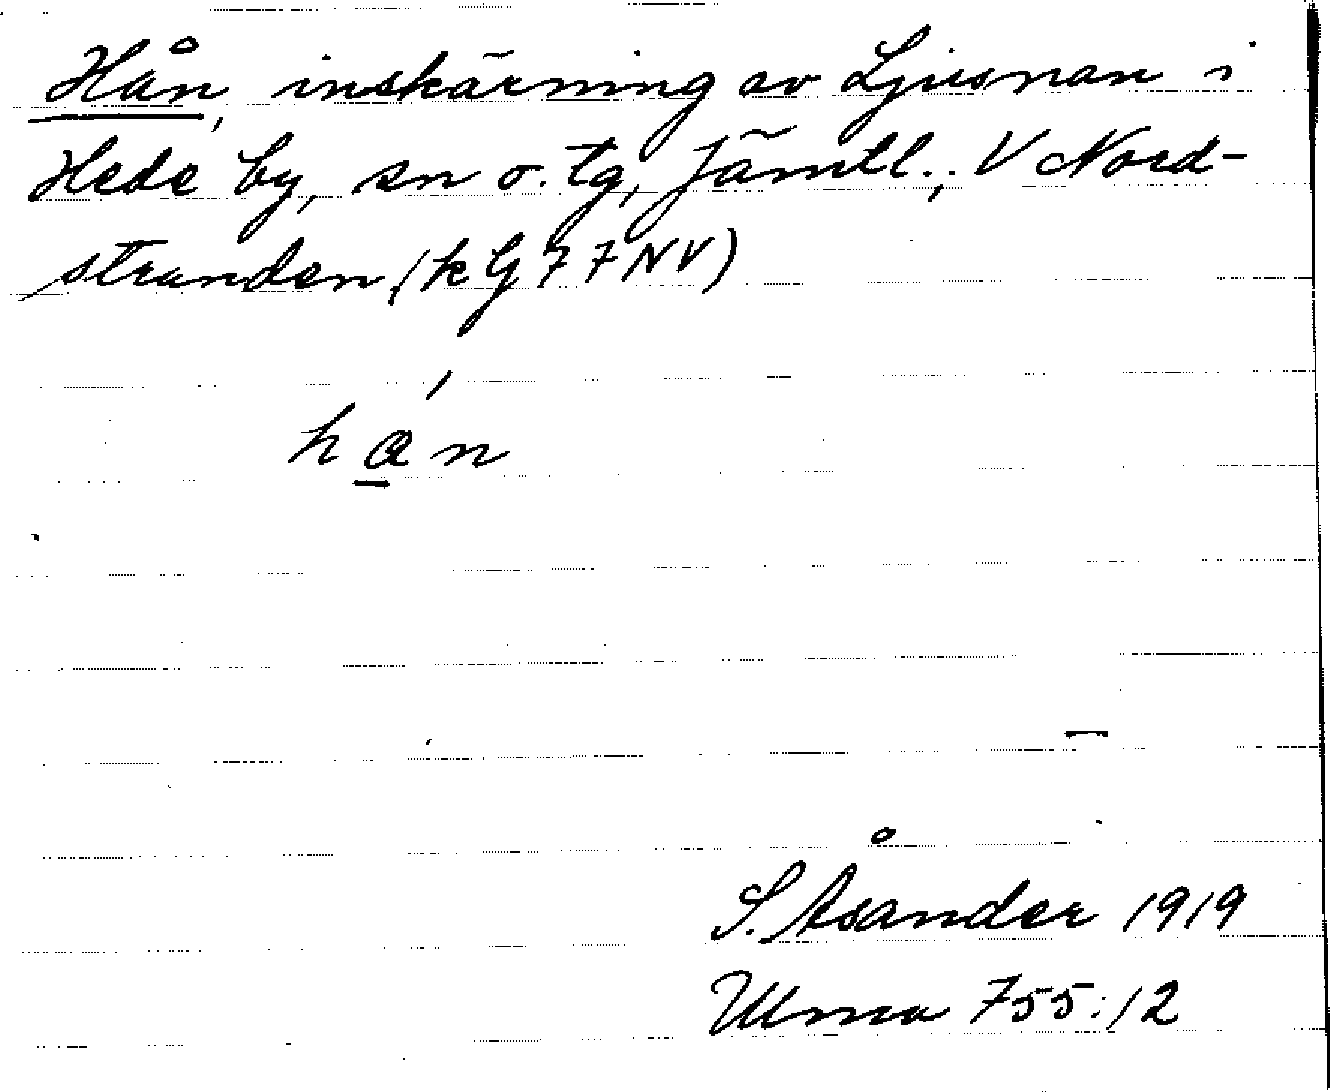 Hån, inskärning av Ljusnan i
Hede by, sn o. tg, Jämtl., V Nord-
stranden (k G 77 NV)
hа̱́n
S. Åsander 1919
Ulma 755:12